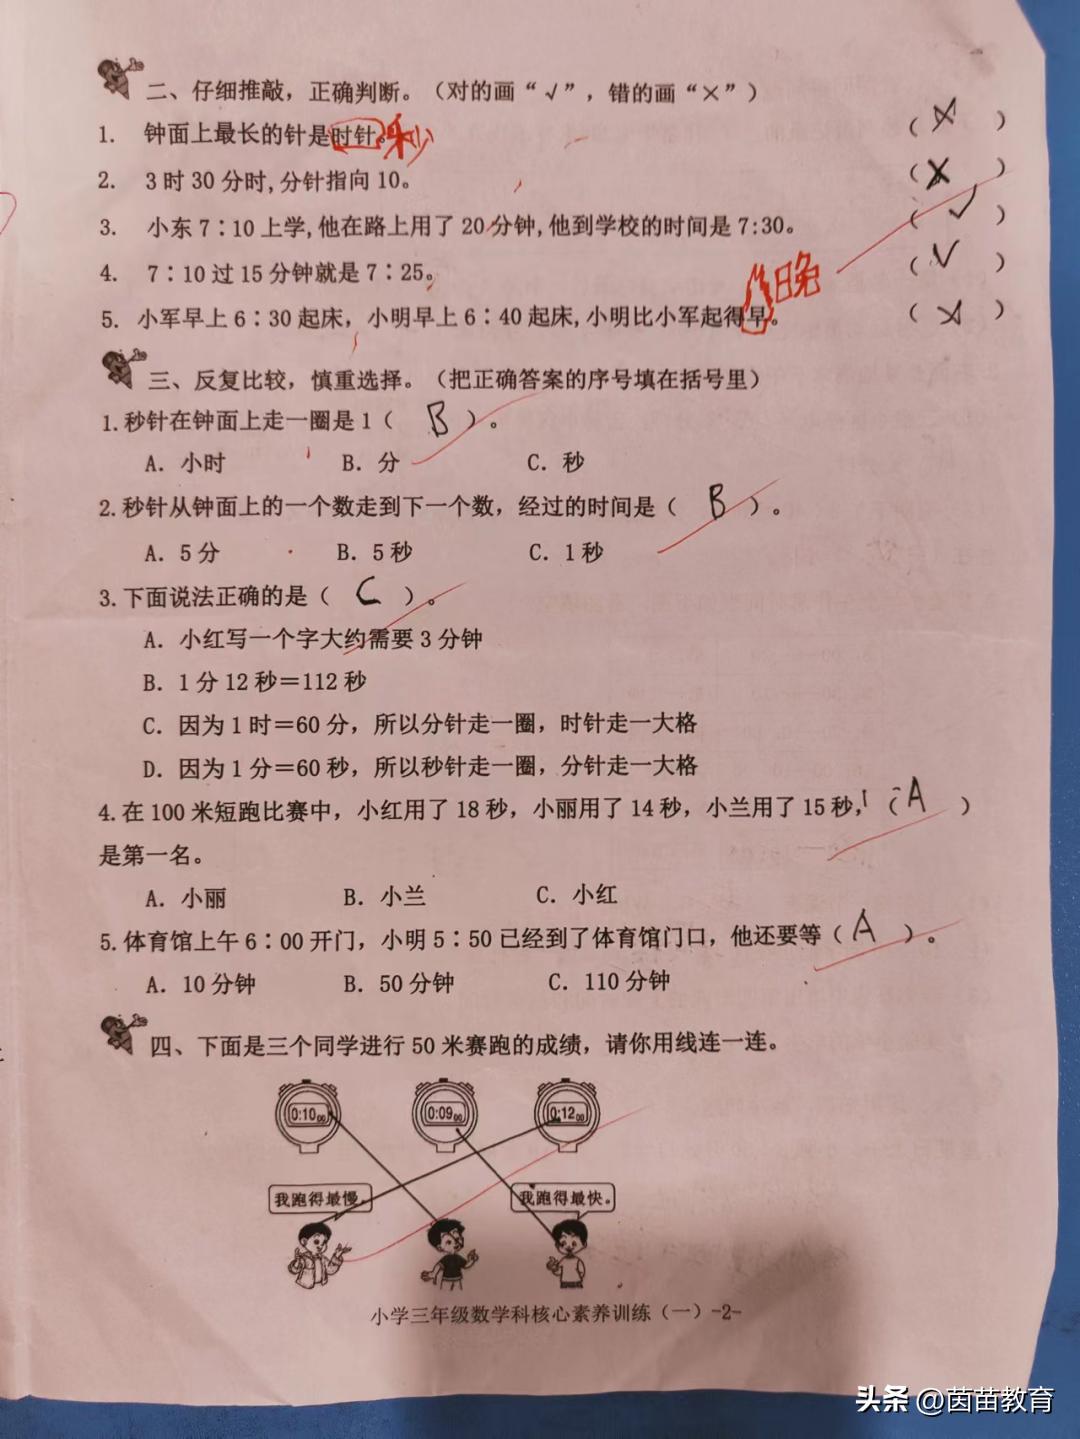 二、仔细推敲，正确判断。（对的画“√”，错的画“×”）
1. 钟面上最长的针是时针。秒 （×）
2. 3时30分时,分针指向10。 （×）
3. 小东7∶10上学,他在路上用了20分钟,他到学校的时间是7:30。 （√）
4. 7∶10过15分钟就是7∶25。 （√）
晚
5. 小军早上6∶30起床，小明早上6∶40起床,小明比小军起得早。 （×）
三、反复比较，慎重选择。（把正确答案的序号填在括号里）
1.秒针在钟面上走一圈是1（ B ）。
A．小时 B．分 C．秒
2.秒针从钟面上的一个数走到下一个数，经过的时间是（ B ）。
A．5分 B．5秒 C．1秒
3.下面说法正确的是（ C ）。
A．小红写一个字大约需要3分钟
B．1分12秒＝112秒
C．因为1时＝60分，所以分针走一圈，时针走一大格
D．因为1分＝60秒，所以秒针走一圈，分针走一大格
4.在100米短跑比赛中，小红用了18秒，小丽用了14秒，小兰用了15秒，（ A ）
是第一名。
A．小丽 B．小兰 C．小红
5.体育馆上午6∶00开门，小明5∶50已经到了体育馆门口，他还要等（ A ）。
A．10分钟 B．50分钟 C．110分钟
四、下面是三个同学进行50米赛跑的成绩，请你用线连一连。
0:10 00 0:09 00 0:12 00
我跑得最慢。 我跑得最快。
小学三年级数学科核心素养训练（一）-2-
头条 @茵苗教育